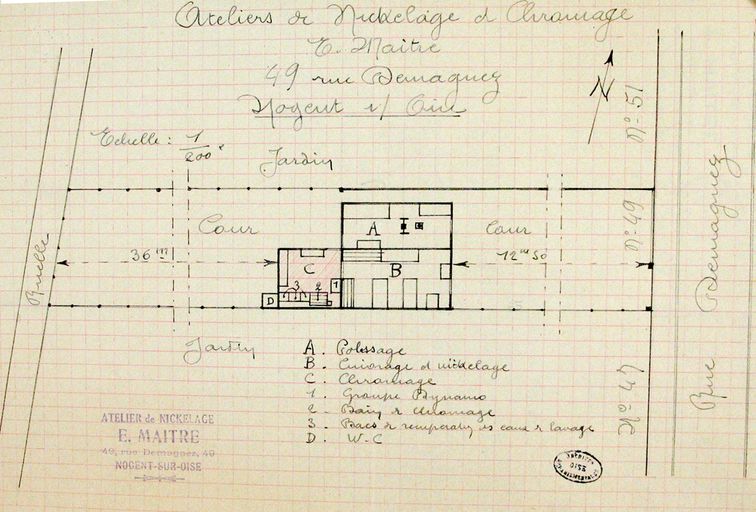 Ateliers de Nickelage et Chromage
E. Maitre
49 rue Demagnez
Nogent s/ Oise
N
Echelle : 1/200e
Jardin
No 51
Cour
A
Cour
No 49
Ruelle
36 m
C
B
12 m 50
Rue Demagnez
3
2
1
D
Jardin
No 47
A. Polissage
B. Cuivrage et nickelage
C. Chromage
1. Groupe Dynamo
2. Bain de chromage
3. Bacs de récupération et eaux de lavage
D. W.C
ATELIER de NICKELAGE
E. MAITRE
49, rue Demagnez, 49
NOGENT-SUR-OISE